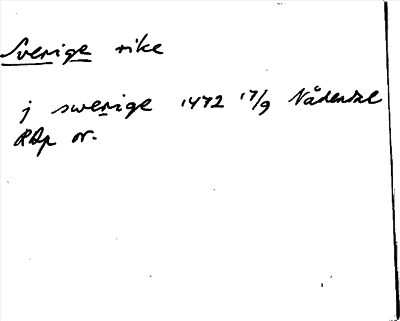 Sverige rike
j swerige 1472 17/9 Nådendal
RAp or.